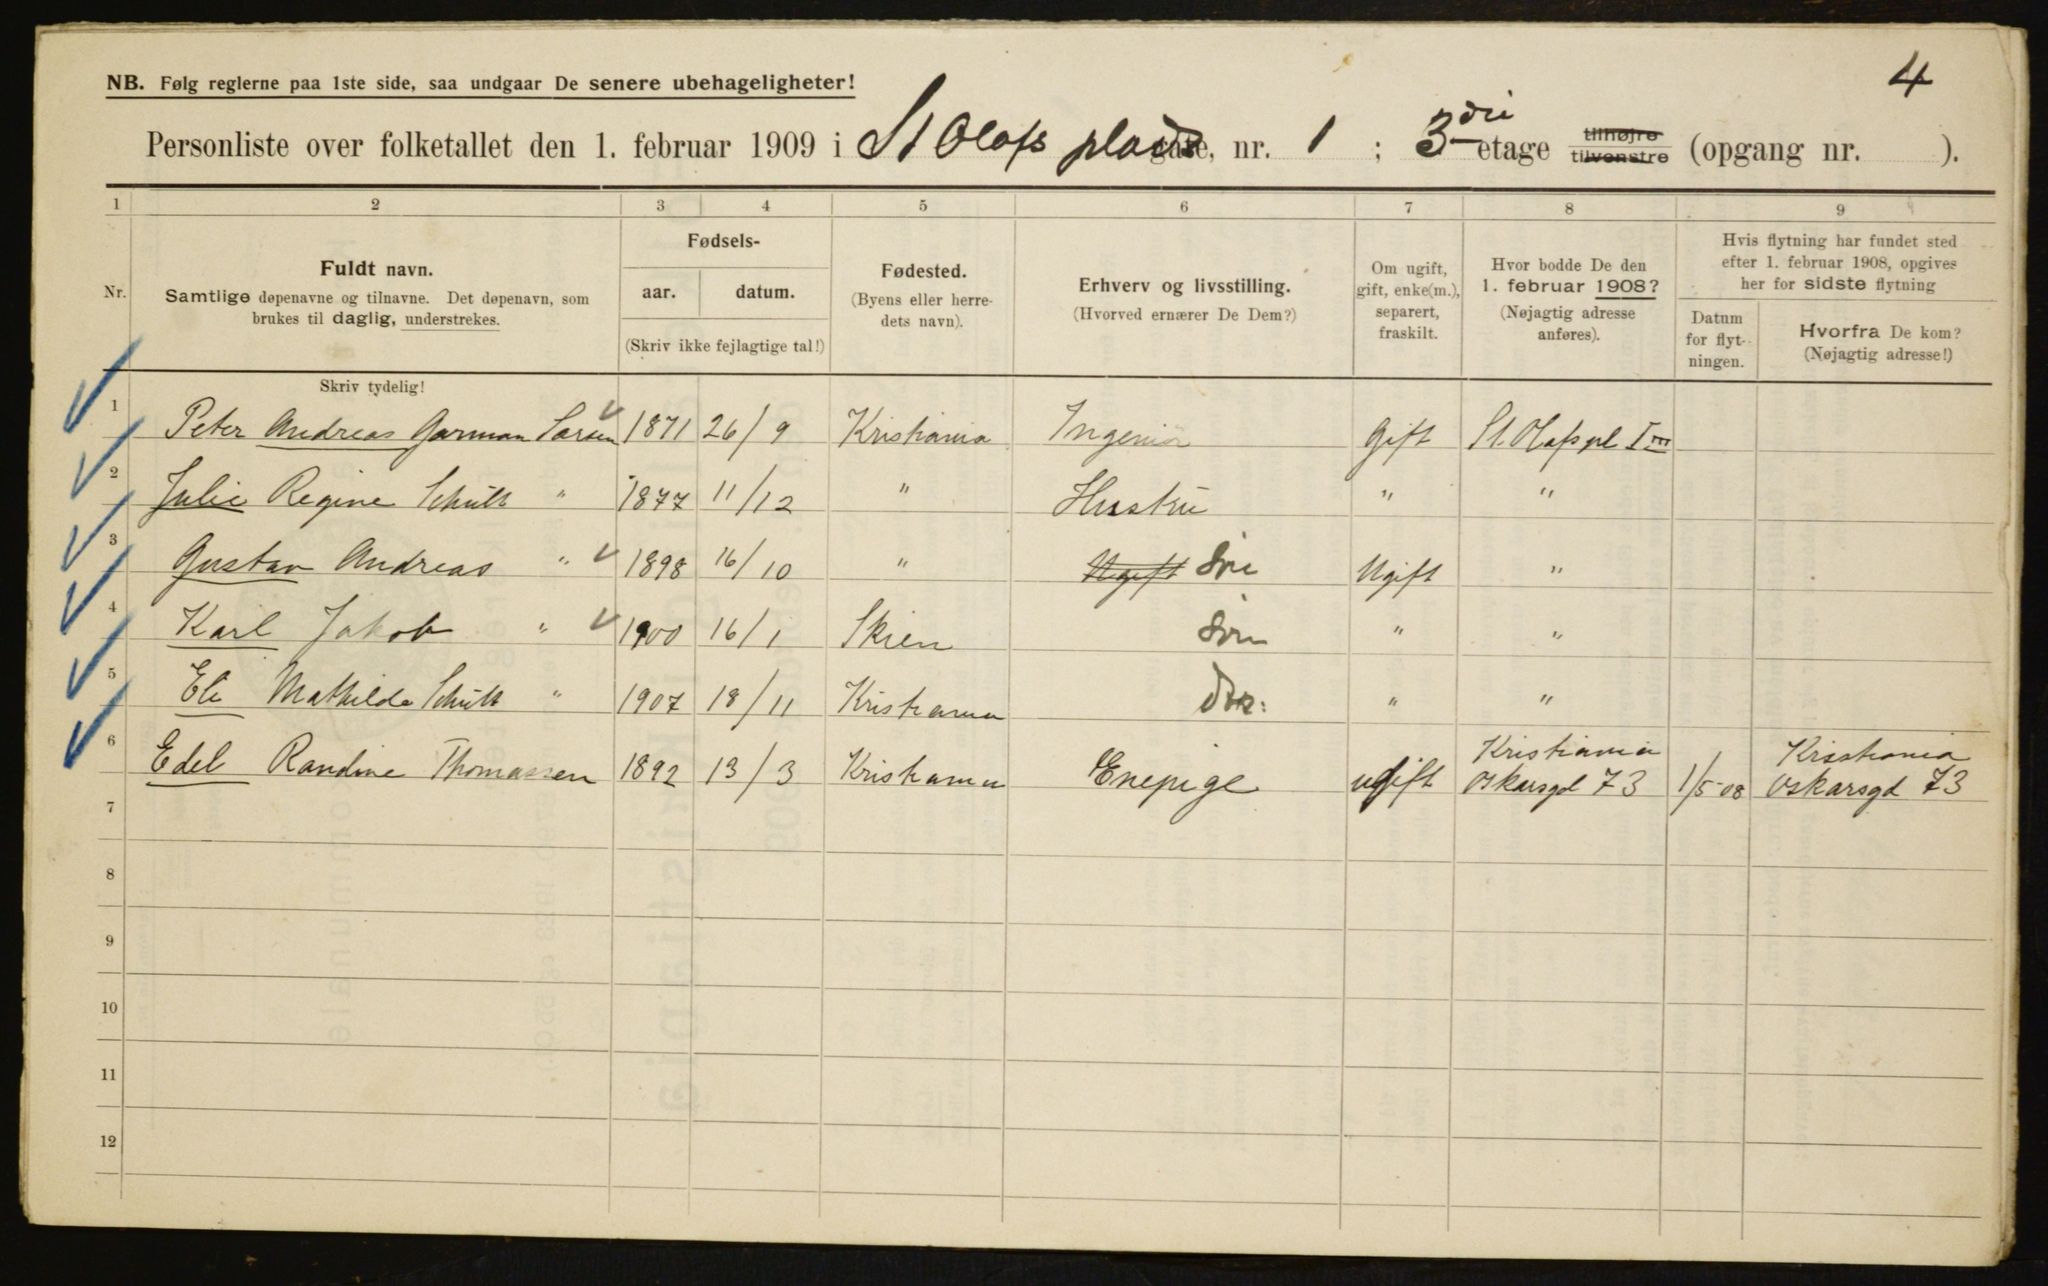 4
NB. Følg reglerne paa 1ste side, saa undgaar De senere ubehageligheter!
Personliste over folketallet den 1. februar 1909 i St Olafs plads gate, nr. 1 ; 3die etage tilhøjre tilvenstre (opgang nr. ).
1 2 3 4 5 6 7 8 9
Nr.
Fuldt navn.
Samtlige døpenavne og tilnavne. Det døpenavn, som
brukes til daglig, understrekes.
Skriv tydelig!
Fødsels-
aar. datum.
(Skriv ikke fejlagtige tal!)
Fødested.
(Byens eller herre-
dets navn).
Erhverv og livsstilling.
(Hvorved ernærer De Dem?)
Om ugift,
gift, enke(m.),
separert,
fraskilt.
Hvor bodde De den
1. februar 1908?
(Nøjagtig adresse
anføres).
Hvis flytning har fundet sted
efter 1. februar 1908, opgives
her for sidste flytning
Datum
for flyt-
ningen.
Hvorfra De kom?
(Nøjagtig adresse!)
1 Peter Andreas Garman Larsen 1871 26/9 Kristiania Ingeniør Gift St. Olafs pl I
2 Julie Regine Schult " 1877 11/12 " Hustru " "
3 Gustav Andreas " 1898 16/10 " Ugift Søn Ugift "
4 Karl Jakob " 1900 16/1 Skien Søn " "
5 Eli Mathilde Schult " 1907 18/11 Kristiania dtr: " "
6 Edel Randine Thomassen 1892 13/3 Kristiania Enepige ugift Kristiania Oskarsgd 73 1/5-08 Kristiania Oskarsgd 73
7
8
9
10
11
12